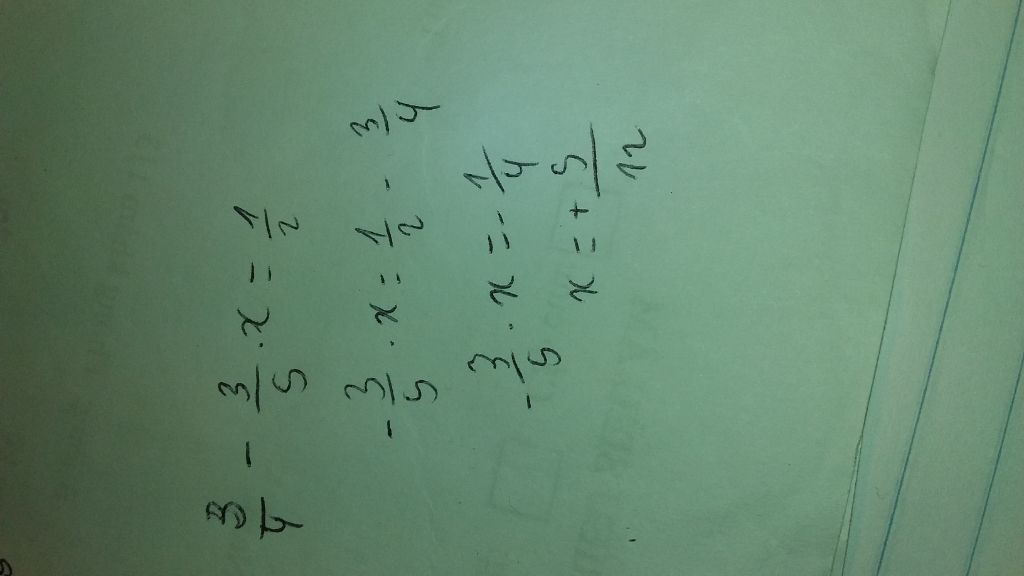 3/4 - 3/5 · x = 1/2
- 3/5 · x = 1/2 - 3/4
- 3/5 · x = - 1/4
x = + 5/12